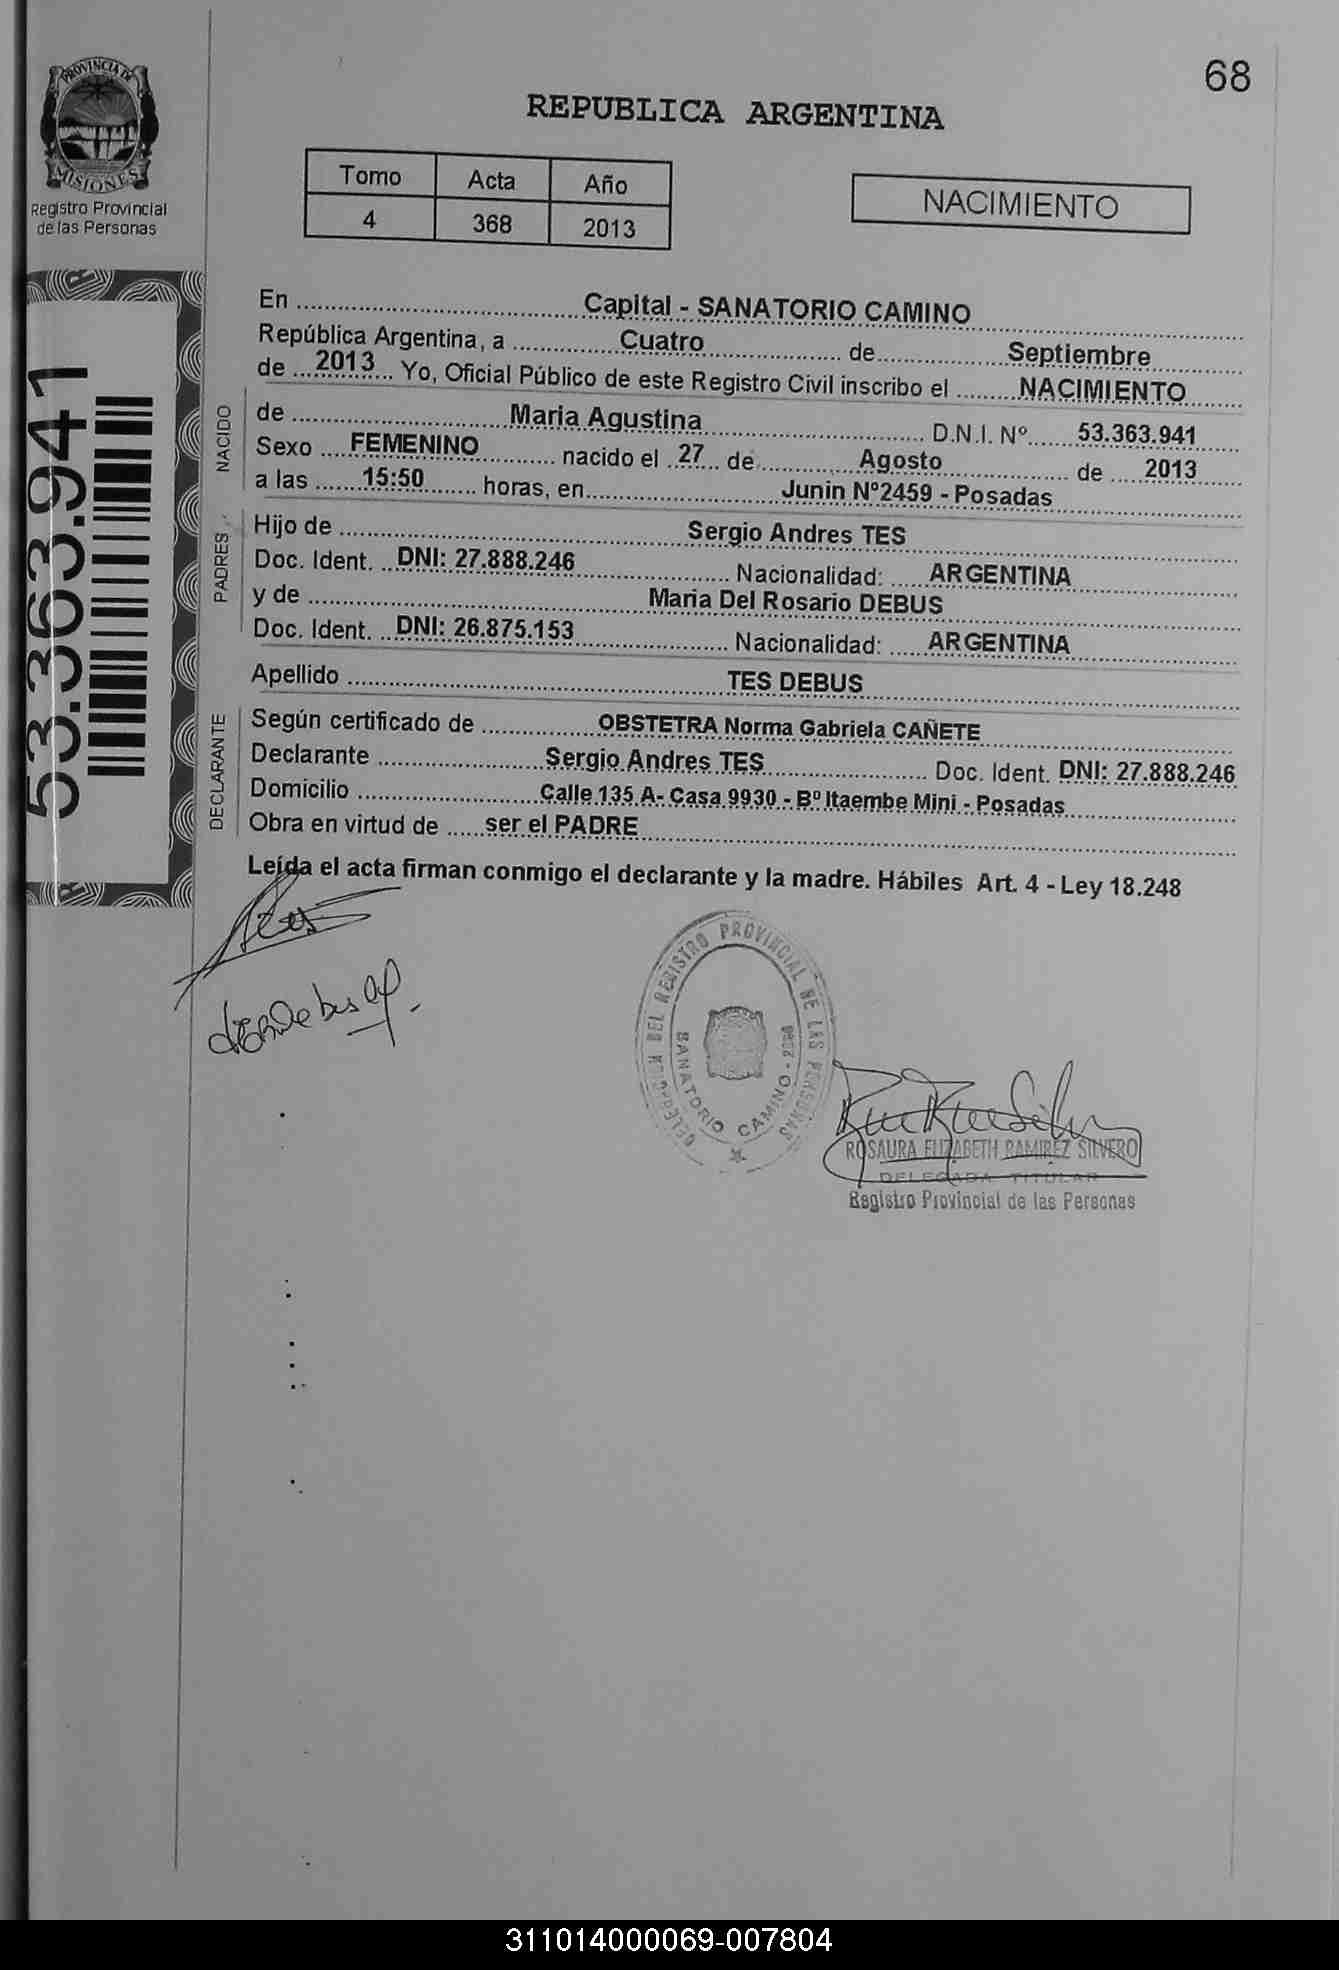 68
PROVINCIA DE
MISIONES
Registro Provincial
de las Personas
REPUBLICA ARGENTINA
Tomo Acta Año
4 368 2013
NACIMIENTO
53.363.941
En ........ Capital - SANATORIO CAMINO ........
República Argentina, a ........ Cuatro ........ de ........ Septiembre ........
de ... 2013 ... Yo, Oficial Público de este Registro Civil inscribo el ........ NACIMIENTO ........
NACIDO
de ........ Maria Agustina ........ D.N.I. Nº ...... 53.363.941
Sexo .... FEMENINO ........ nacido el .. 27 .. de ........ Agosto ........ de .... 2013 ....
a las ...... 15:50 ...... horas, en ........ Junin Nº2459 - Posadas ........
PADRES
Hijo de ........ Sergio Andres TES ........
Doc. Ident. .. DNI: 27.888.246 ........ Nacionalidad: .... ARGENTINA ........
y de ........ Maria Del Rosario DEBUS ........
Doc. Ident. .. DNI: 26.875.153 ........ Nacionalidad: .... ARGENTINA ........
Apellido ........ TES DEBUS ........
DECLARANTE
Según certificado de ........ OBSTETRA Norma Gabriela CAÑETE ........
Declarante ........ Sergio Andres TES ........ Doc. Ident. DNI: 27.888.246
Domicilio ........ Calle 135 A- Casa 9930 - Bº Itaembe Mini - Posadas ........
Obra en virtud de ...... ser el PADRE ........
Leída el acta firman conmigo el declarante y la madre. Hábiles Art. 4 - Ley 18.248
DELEGACION DEL REGISTRO PROVINCIAL DE LAS PERSONAS
SANATORIO CAMINO
ROSAURA ELIZABETH RAMIREZ SILVERO
DELEGADA TITULAR
Registro Provincial de las Personas
311014000069-007804